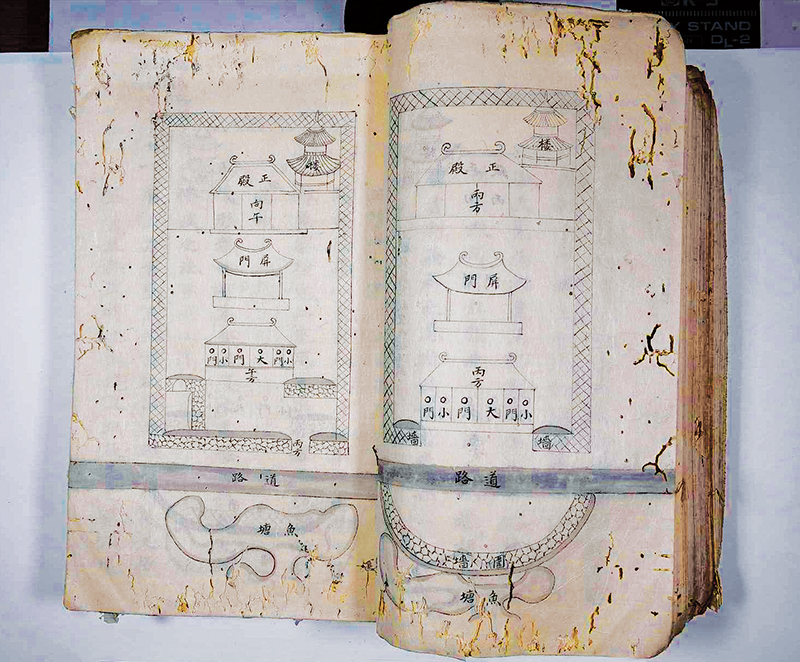 STAND
DL-2
楼
正殿
屏門
丙方
小門大門小門
墙
墙
道路
圍墻
魚塘
正殿
向午
屏門
小門大門小門
午方
丙方
道路
魚塘